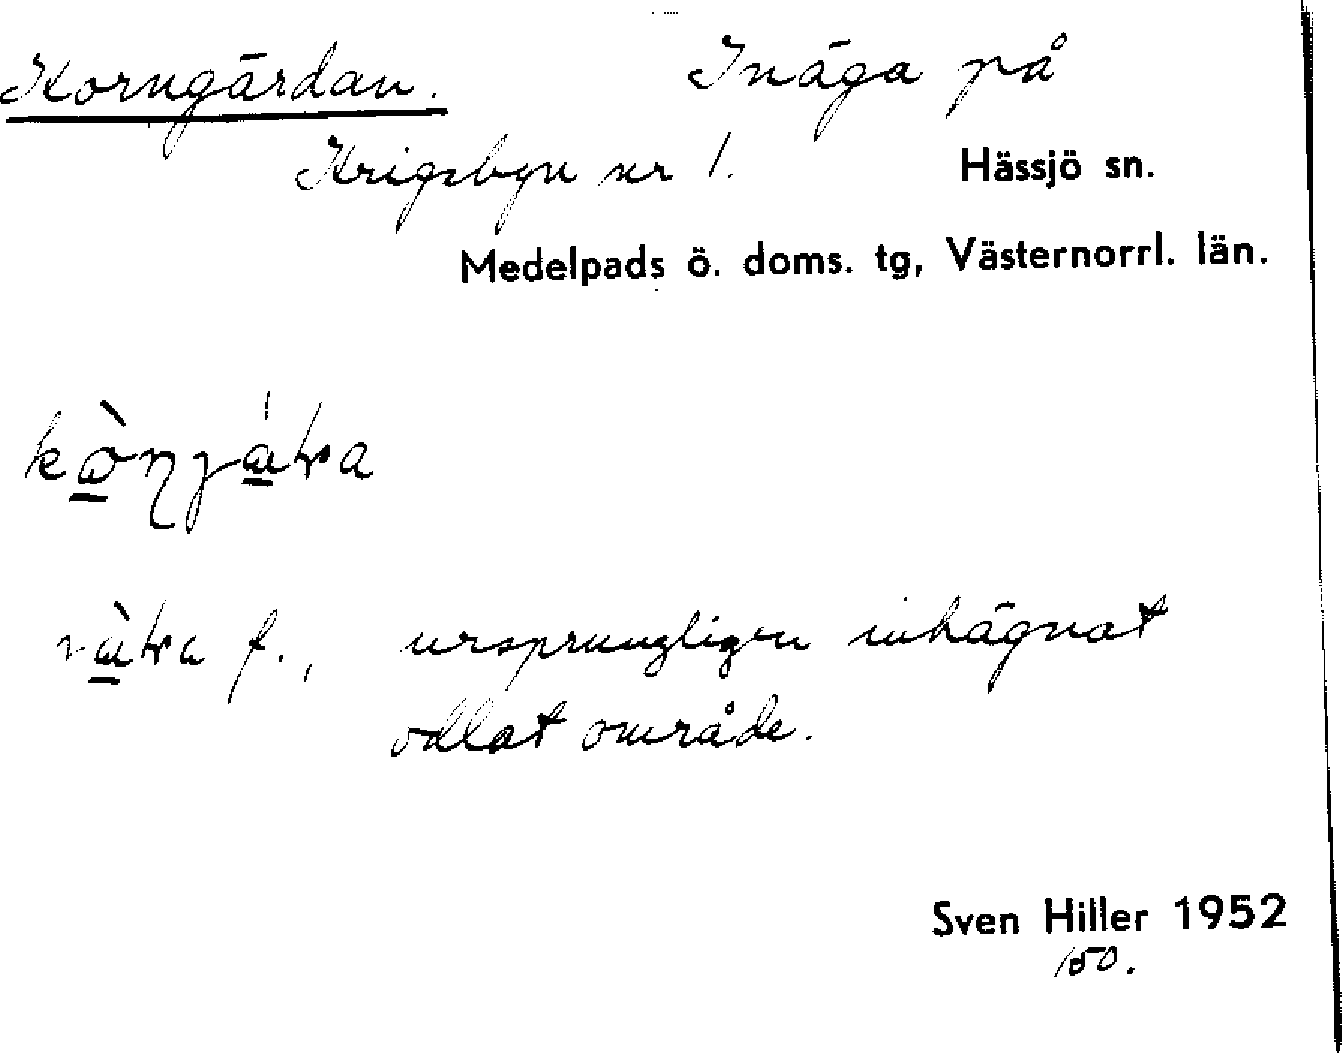 Korngärdan. Inäga på
Krigsbyn nr 1. Hässjö sn.
Medelpads ö. doms. tg, Västernorrl. län.
f., ursprungligen inhägnat
odlat område.
Sven Hiller 1952
150.